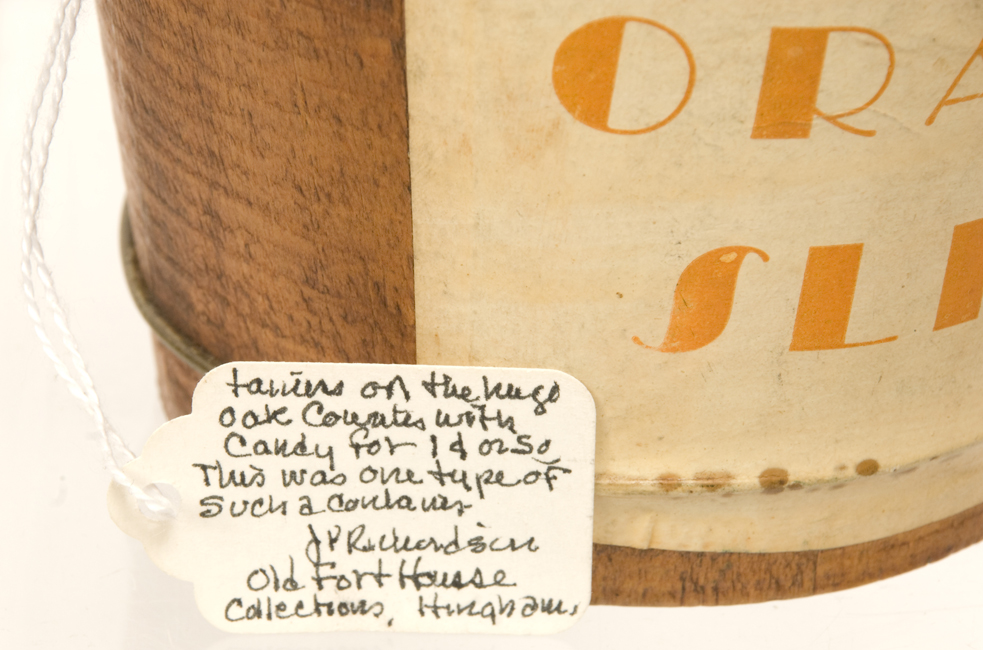 ORA
SLI
tainers on the huge
oak Counters with
Candy for 1¢ or so
This was one type of
Such a container
J P Richardson
Old Fort House
Collections, Hingham.